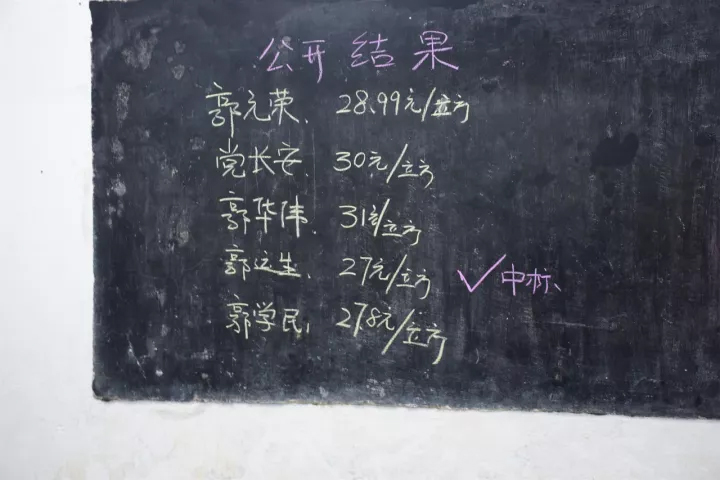 公开结果
郭元荣、28.99元/立方
党长安、30元/立方
郭华伟、31元/立方
郭运生、27元/立方 ✓中标、
郭学民、27.8元/立方